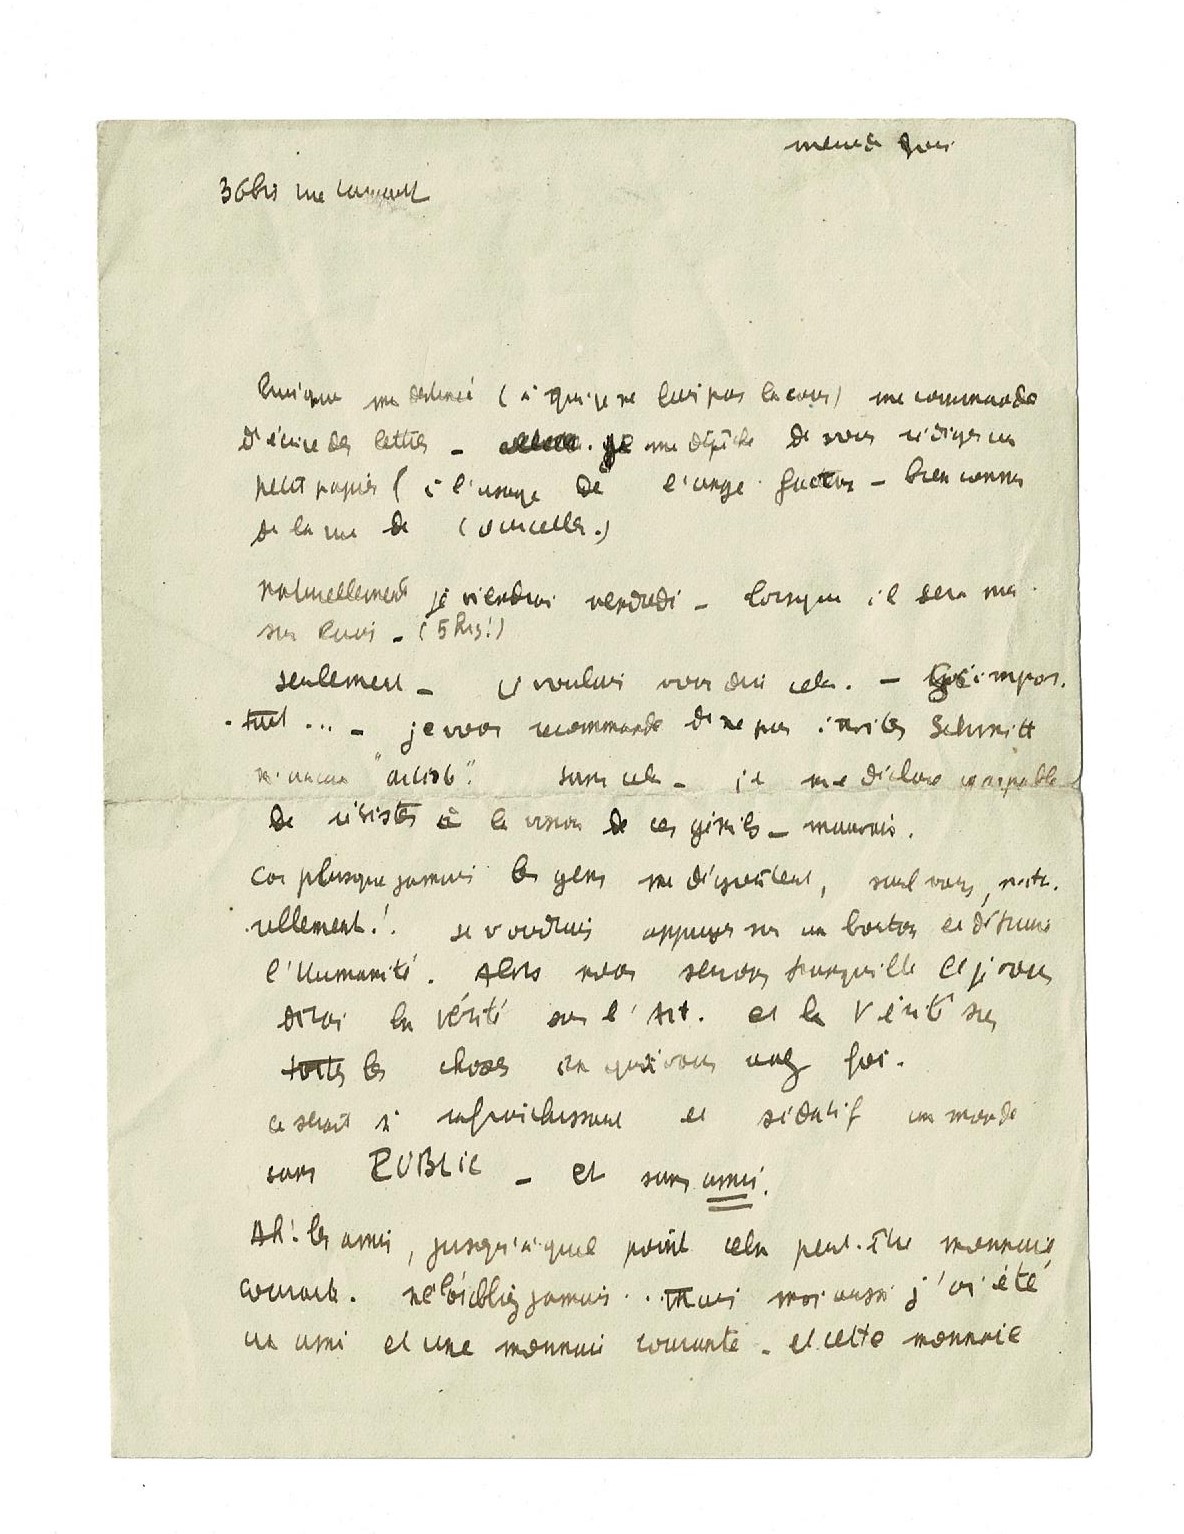 mercredi soir
36 bis rue
Puisque ma destinée (à qui je ne suis pas la cour) me commande
d'écrire des lettres _ je me dépêche de vous rédiger un
petit papier (à l'usage de l'ange facteur _ bien connu
de la rue de Courcelles.)
naturellement je viendrai vendredi _ lorsque il sera ma
_ (5 hrs!)
seulement _ je voulais vous dire cela. _ impor.
.tant ... _ je vous recommande de ne pas inviter Schmitt
ni aucun "artiste". sans cela _ je me déclare incapable
de résister à la vision de ces génies _ mauvais.
Car plus que jamais les gens me dégoûtent, sauf vous, natu.
.rellement! je voudrais appuyer sur un bouton et détruire
l'Humanité. Alors nous serions tranquille et je vous
dirai la vérité sur l'Art. et la Vérité sur
toutes les choses en qui vous avez foi.
ce serait si rafraichissant et sédatif un monde
sans PUBLIC _ et sans amis.
Ah! les amis, jusqu'à quel point cela peut-être monnaie
courante. ne l'oubliez jamais ... Mais moi aussi j'ai été
un ami et une monnaie courante _ et cette monnaie